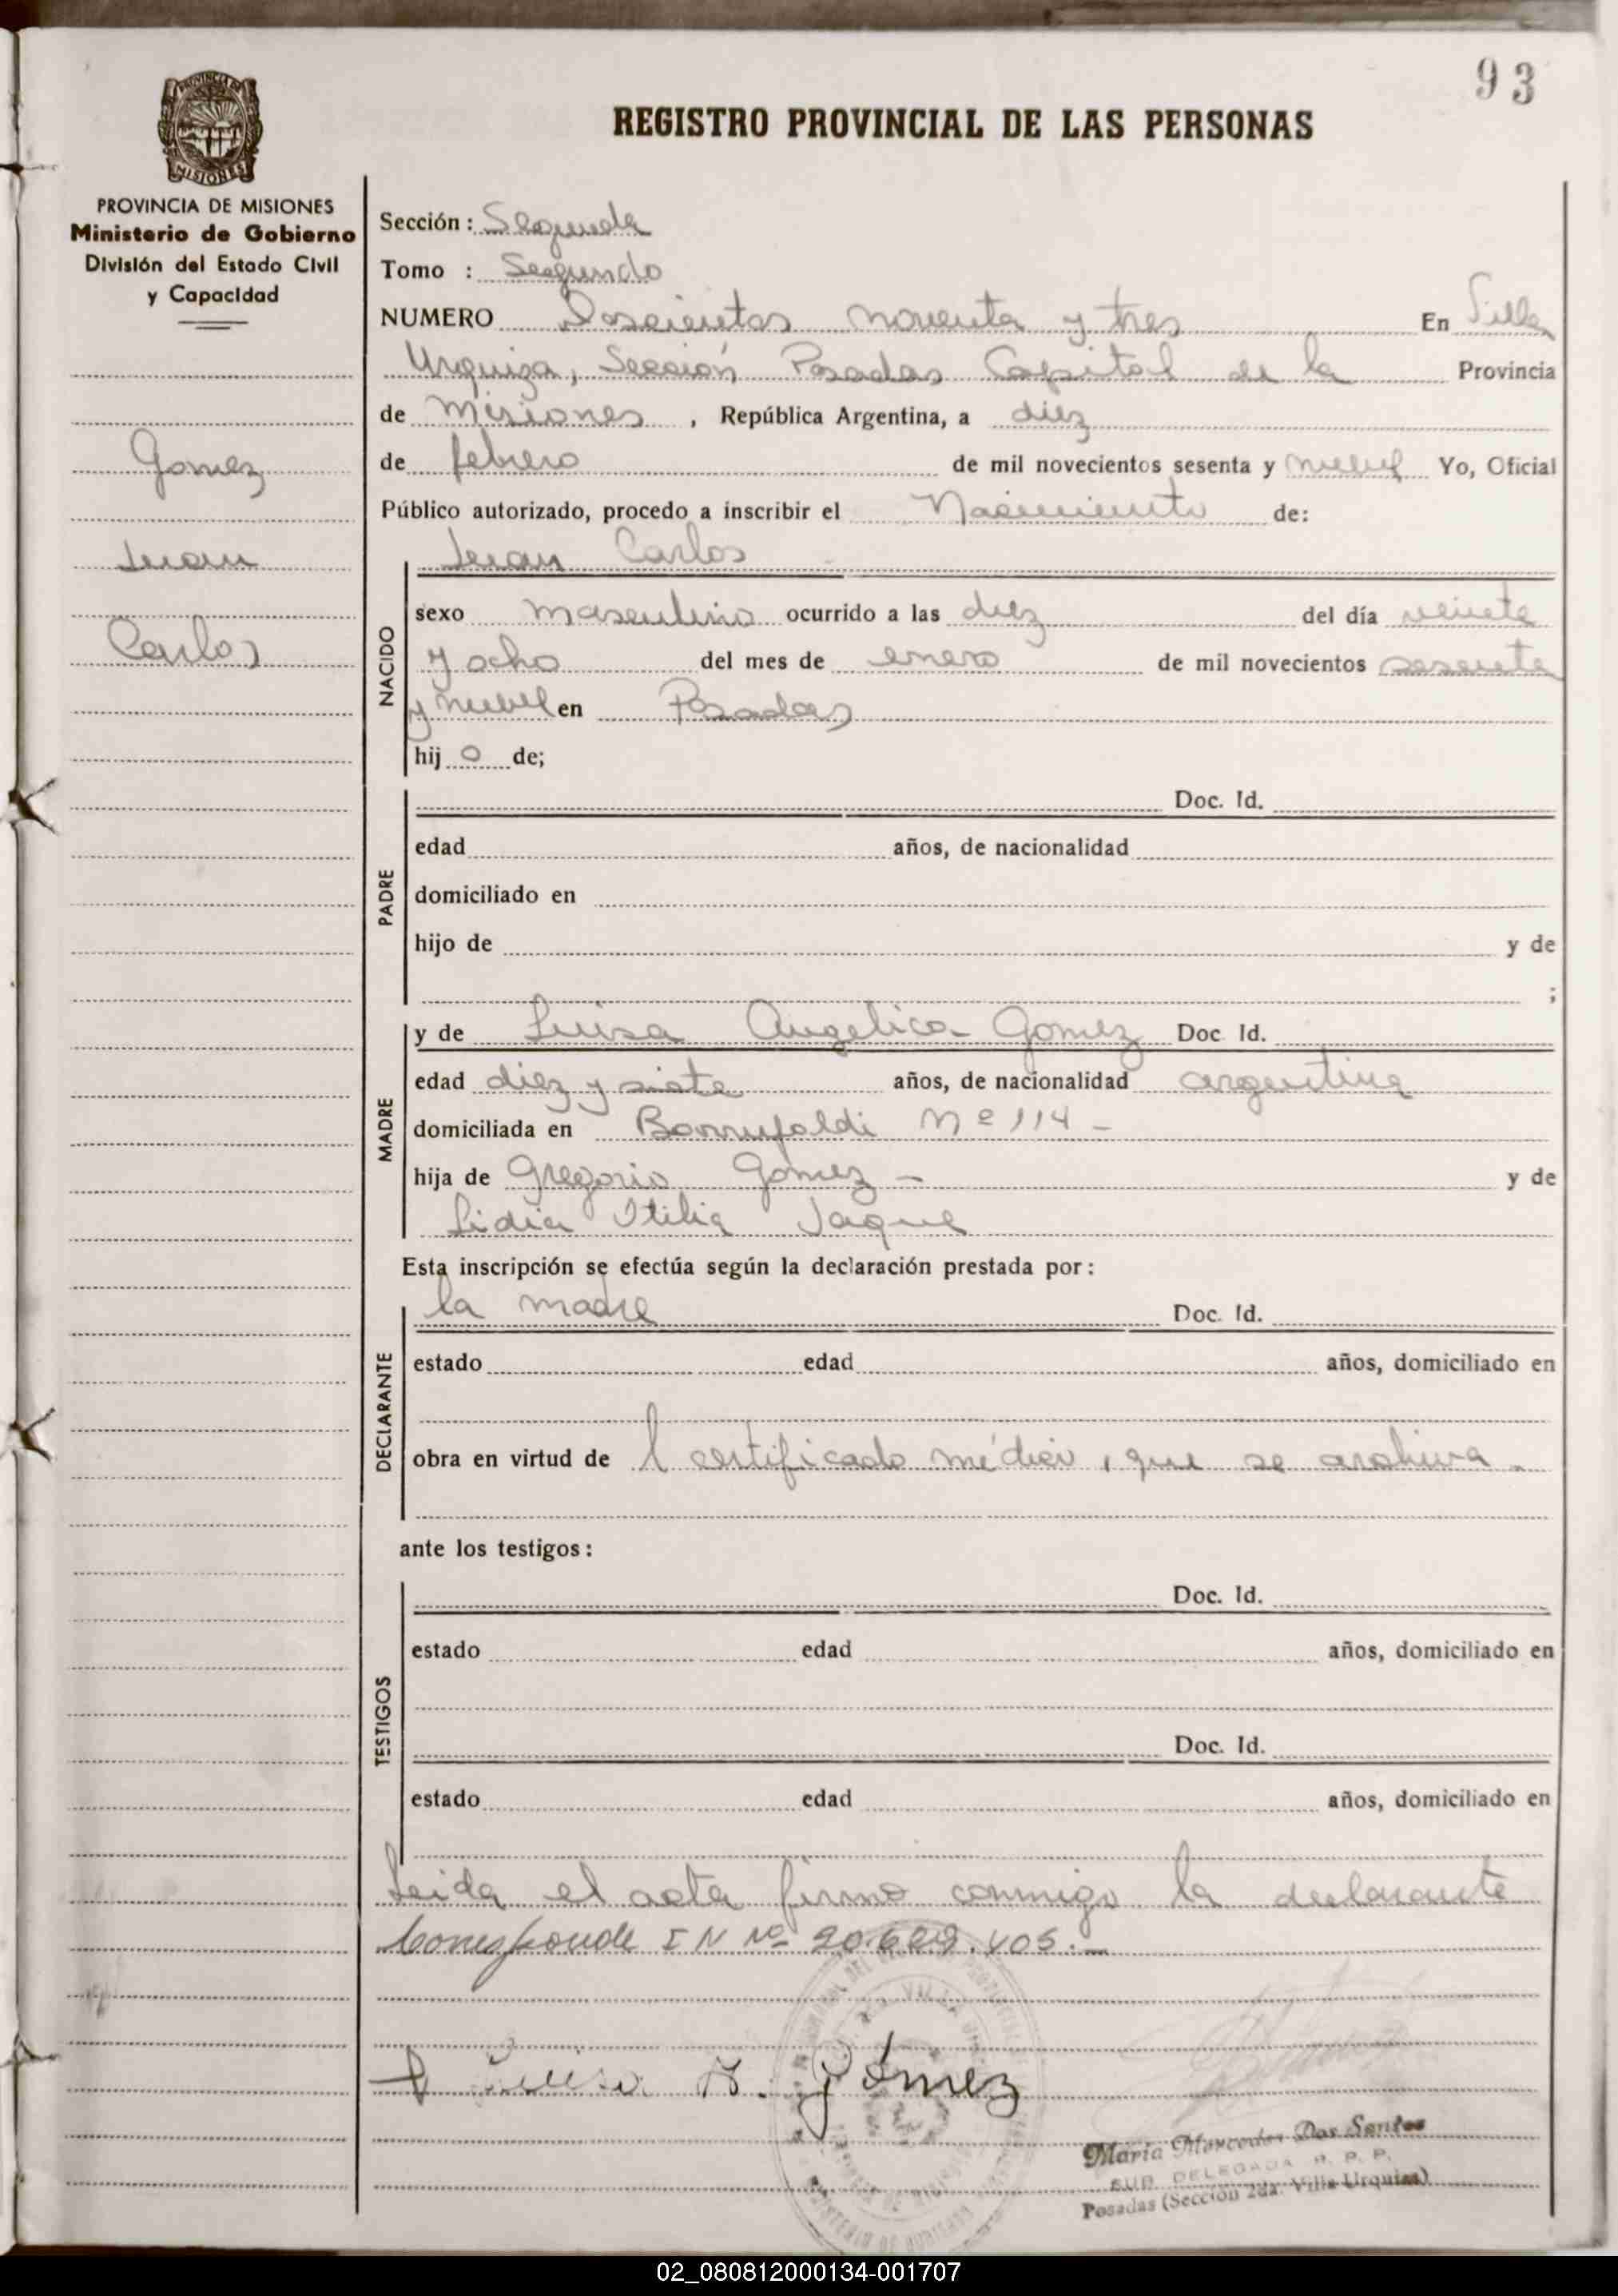 93
REGISTRO PROVINCIAL DE LAS PERSONAS
PROVINCIA DE MISIONES
MISIONES
PROVINCIA DE MISIONES
Ministerio de Gobierno
División del Estado Civil
y Capacidad
Gomez
Juan
Carlos
Sección: Segunda
Tomo : Segundo
NUMERO Doscientos noventa y tres En Villa
Urquiza, Sección Posadas Capital de la Provincia
de Misiones, República Argentina, a diez
de febrero de mil novecientos sesenta y nueve Yo, Oficial
Público autorizado, procedo a inscribir el Nacimiento de:
NACIDO
Juan Carlos
sexo masculino ocurrido a las diez del día veinte
y ocho del mes de enero de mil novecientos sesenta
y nueve en Posadas
hij o de;
PADRE
Doc. Id.
edad años, de nacionalidad
domiciliado en
hijo de y de
;
MADRE
y de Luisa Angelica Gomez Doc Id.
edad diez y siete años, de nacionalidad argentina
domiciliada en Nº 114 -
hija de Gregorio Gomez - y de
Lidia Otilia Jaque
Esta inscripción se efectúa según la declaración prestada por:
DECLARANTE
la madre Doc. Id.
estado edad años, domiciliado en
obra en virtud de l certificado médico, que se archiva.
ante los testigos:
TESTIGOS
Doc. Id.
estado edad años, domiciliado en
Doc. Id.
estado edad años, domiciliado en
Leida el acta firmo conmigo la declarante
Corresponde I N Nº 20.609.405.-
Luisa A. Gómez
Maria Mercedes Dos Santos
SUB DELEGADA R. P. P.
Posadas (Sección 2da. Villa Urquiza)
02_080812000134-001707